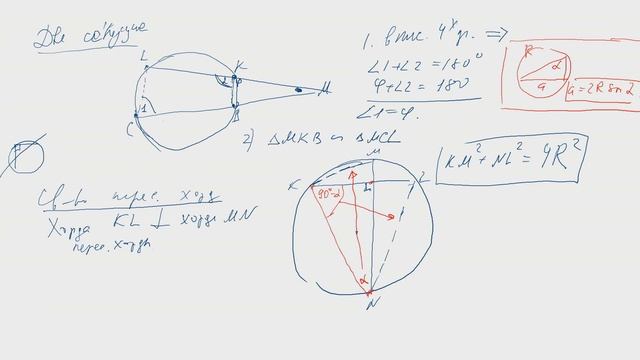 Две секущие
L
K
M
1
C
B
1. впис. 4х уг. ⇒
∠1+∠2 = 180°
φ+∠2 = 180
∠1 = φ.
R
α
a
a = 2R sin α
2) ΔMKB ∾ ΔMCL
KM² + NL² = 4R²
Св-ва перес. хорд
Хорда KL ⊥ хорде MN
перес. хорды
M
K
L
90°-α
α
N